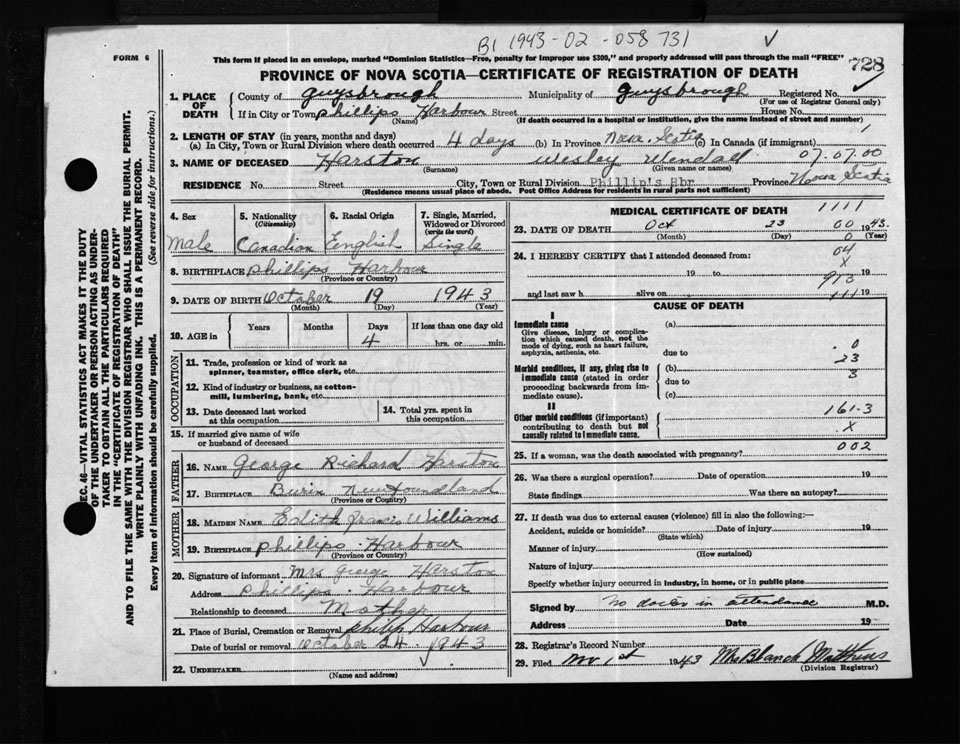 B1 1943-02-058 731
728
FORM 6
This form if placed in an envelope, marked "Dominion Statistics—Free, penalty for Improper use $300," and properly addressed will pass through the mail "FREE"
PROVINCE OF NOVA SCOTIA—CERTIFICATE OF REGISTRATION OF DEATH
1. PLACE OF DEATH
County of Guysbrough Municipality of Guysbrough Registered No.
(For use of Registrar General only)
If in City or Town Phillips Harbour Street House No.
(Name) (If death occurred in a hospital or institution, give the name instead of street and number)
2. LENGTH OF STAY (in years, months and days)
(a) In City, Town or Rural Division where death occurred 4 days (b) In Province Nova Scotia (c) In Canada (if immigrant) 1
3. NAME OF DECEASED Harston Wesley Wendall 07.07.00
(Surname) (Given name or names)
RESIDENCE No. Street City, Town or Rural Division Phillip's Hbr Province Nova Scotia
(Residence means usual place of abode. Post Office Address for residents in rural parts not sufficient)
4. Sex
Male
5. Nationality
(Citizenship)
Canadian
6. Racial Origin
English
7. Single, Married, Widowed or Divorced
(write the word)
Single
8. BIRTHPLACE Phillips Harbour
(Province or Country)
9. DATE OF BIRTH October 19 1943
(Month) (Day) (Year)
10. AGE in
Years Months Days If less than one day old
4 hrs. or min.
OCCUPATION
11. Trade, profession or kind of work as
spinner, teamster, office clerk, etc.
12. Kind of industry or business, as cotton-
mill, lumbering, bank, etc.
13. Date deceased last worked
at this occupation
14. Total yrs. spent in
this occupation
15. If married give name of wife
or husband of deceased
FATHER
16. NAME George Richard Harston
17. BIRTHPLACE Burin Newfoundland
(Province or Country)
MOTHER
18. MAIDEN NAME Edith Francis Williams
19. BIRTHPLACE Phillips Harbour
(Province or Country)
20. Signature of informant Mrs George Harston
Address Phillips Harbour
Relationship to deceased Mother
21. Place of Burial, Cremation or Removal Philip Harbour
Date of burial or removal October 24 1943
22. UNDERTAKER
(Name and address)
MEDICAL CERTIFICATE OF DEATH 1111
23. DATE OF DEATH Oct 23 00 1943.
(Month) (Day) 0 (Year)
24. I HEREBY CERTIFY that I attended deceased from: 04
X
19 to 19
913
and last saw h alive on 111 19
CAUSE OF DEATH
I
Immediate cause
Give disease, injury or complica-
tion which caused death, not the
mode of dying, such as heart failure,
asphyxia, asthenia, etc.
(a)
. 0
due to 23
Morbid conditions, if any, giving rise to
immediate cause (stated in order
proceeding backwards from im-
mediate cause).
(b) 3
due to
(c)
II
Other morbid conditions (if important)
contributing to death but not
causally related to immediate cause.
161-3
.X
25. If a woman, was the death associated with pregnancy? 002
26. Was there a surgical operation? Date of operation 19
State findings Was there an autopsy?
27. If death was due to external causes (violence) fill in also the following:—
Accident, suicide or homicide? Date of injury 19
(State which)
Manner of injury
(How sustained)
Nature of injury
Specify whether injury occurred in industry, in home, or in public place
Signed by No doctor in attendance M.D.
Address Date 19
28. Registrar's Record Number
29. Filed Nov 1st 1943 Mrs Blanch Matthews
(Division Registrar)
SEC. 46—VITAL STATISTICS ACT MAKES IT THE DUTY
OF THE UNDERTAKER OR PERSON ACTING AS UNDER-
TAKER TO OBTAIN ALL THE PARTICULARS REQUIRED
IN THE "CERTIFICATE OF REGISTRATION OF DEATH"
AND TO FILE THE SAME WITH THE DIVISION REGISTRAR WHO SHALL ISSUE THE BURIAL PERMIT.
WRITE PLAINLY WITH UNFADING INK. THIS IS A PERMANENT RECORD.
Every item of information should be carefully supplied. (See reverse side for instructions.)